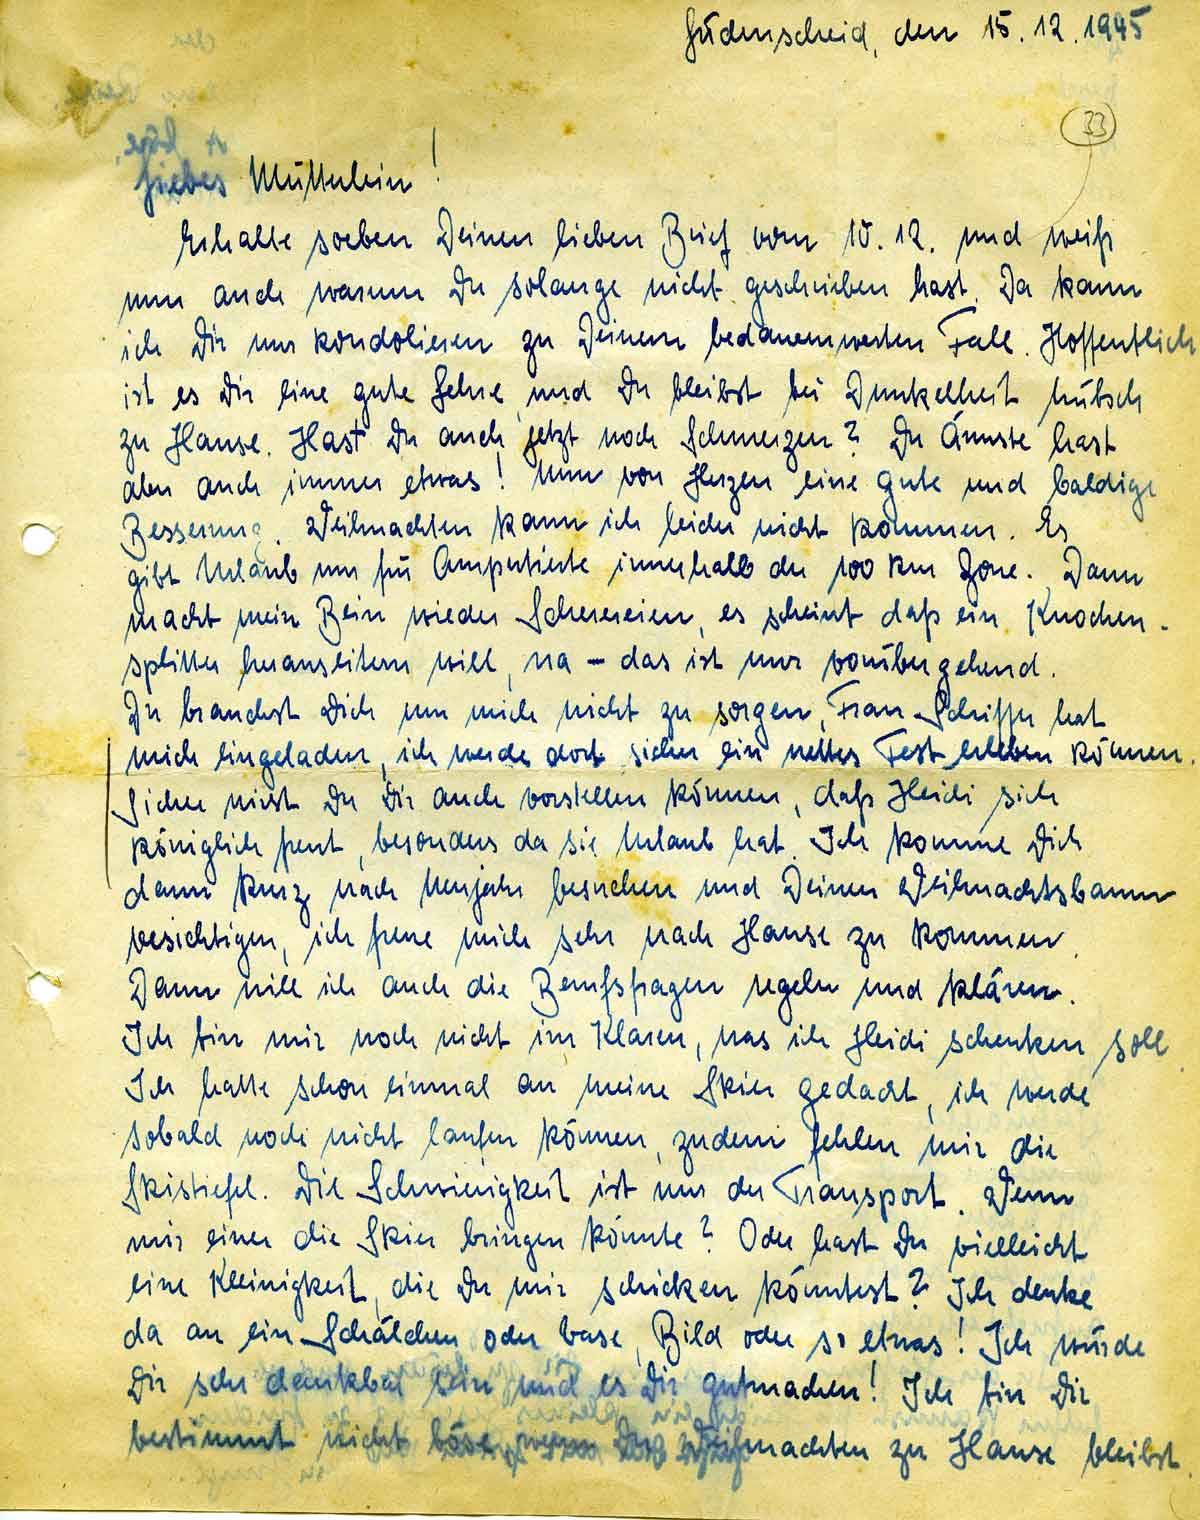 Lüdenscheid, den 15.12.1945
33
Liebes Mütterlein!
Erhalte soeben Deinen lieben Brief vom 10.12. und weiß
nun auch warum Du solange nicht geschrieben hast. Da kann
ich Dir nur kondolieren zu Deinem bedauernswerten Fall. Hoffentlich
ist es Dir eine gute Lehre und Du bleibst bei Dunkelheit hübsch
zu Hause. Hast Du auch jetzt noch Schmerzen? Du Ärmste hast
aber auch immer etwas! Nun von Herzen eine gute und baldige
Besserung. Weihnachten kann ich leider nicht kommen. Es
gibt Urlaub nur für Amputierte innerhalb der 100 km Zone. Dann
macht mein Bein wieder Scherereien, es scheint daß ein Knochen-
splitter herauseitern will, na – das ist nur vorübergehend.
Du brauchst Dich um mich nicht zu sorgen, Frau Schiffer hat
mich eingeladen, ich werde dort sicher ein nettes Fest erleben können.
Sicher wirst Du Dir auch vorstellen können, daß Heidi sich
königlich freut, besonders da sie Urlaub hat. Ich komme Dich
dann kurz nach Neujahr besuchen und Deinen Weihnachtsbaum
besichtigen, ich freue mich sehr nach Hause zu kommen.
Dann will ich auch die Berufsfragen regeln und klären.
Ich bin mir noch nicht im Klaren, was ich Heidi schenken soll
Ich hatte schon einmal an meine Skier gedacht, ich werde
sobald noch nicht laufen können, zudem fehlen mir die
Skistiefel. Die Schwierigkeit ist nur der Transport. Wenn
mir einer die Skier bringen könnte? Oder hast Du vielleicht
eine Kleinigkeit, die Du mir schicken könntest? Ich denke
da an ein Schälchen oder Vase, Bild oder so etwas! Ich würde
Dir sehr dankbar sein und es Dir gutmachen! Ich bin Dir
bestimmt nicht böse wenn Du Weihnachten zu Hause bleibst.